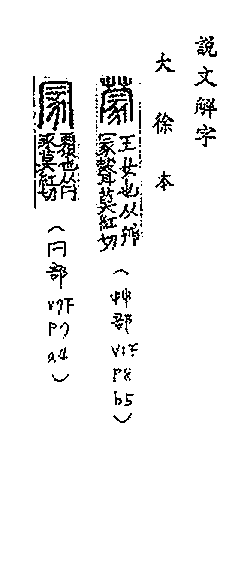 說文解字
大徐本
蒙 王女也从艸
冡聲莫紅切
(艸部 V1下 P8 b5)
冡 覆也从冃
豕莫紅切
(冃部 V7下 P7 a4)